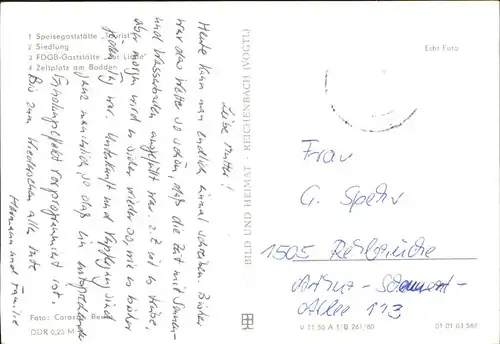 1 Speisegaststätte „Tourist"
2 Siedlung
3 FDGB-Gaststätte „Zur Linde"
4 Zeltplatz am Bodden
Foto: Corazza, Be
DDR 0,25 M
BILD UND HEIMAT · REICHENBACH (VOGTL)
Echt Foto
V 11 50 A 1/B 261/80
01 01 03 562
Liebe Mutter!
Heute kann man endlich einmal schreiben. Bisher
war das Wetter so schön, daß die Zeit mit Sonnen-
und Wasserbaden ausgefüllt war. z.Z. ist es Heise,
aber morgen wird es sicher wieder so, wie es bisher
jeden Tag war. Unterkunft und Verpflegung sind
ganz manierlich, so daß ein entsprechender
Erholungseffekt vorprogrammiert ist.
Bis zum Wiedersehen alles Gute
Hermann und Familie
Frau
G.
1505
Arthur-
Allee 113